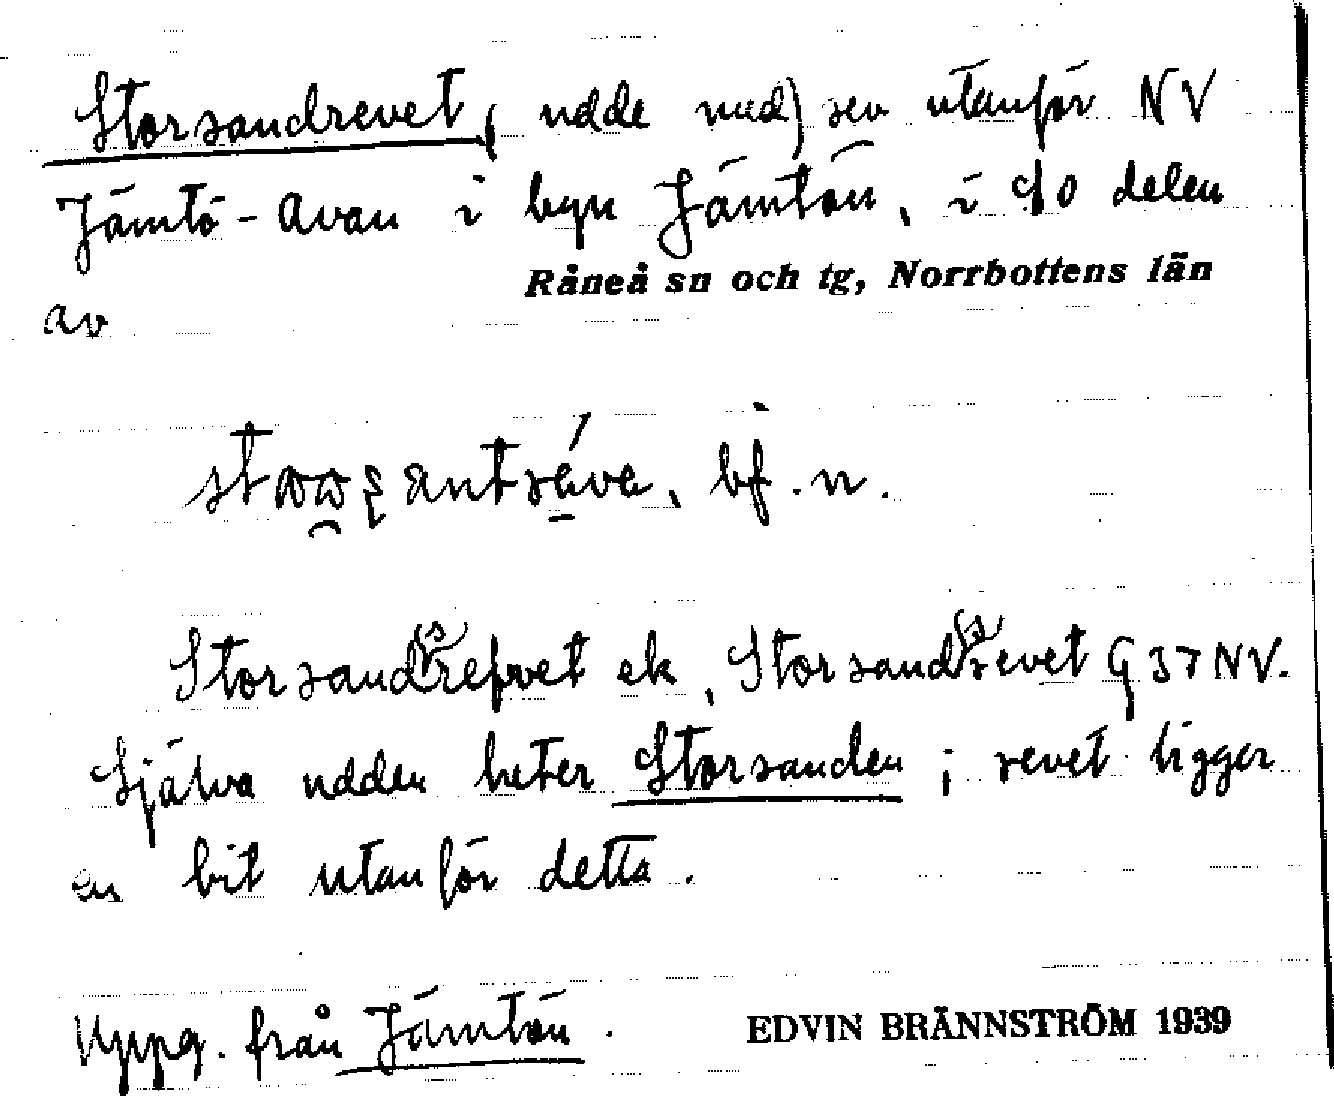 Storsandrevet, (udde med) rev utanför NV
Jämtö-Avan i byn Jämtön, i SO delen
Råneå sn och tg, Norrbottens län
av
bf. n.
Storsand(s)refvet ek, Storsand(s)revet G 37 NV.
Själva udden heter Storsanden; revet ligger
en bit utanför detta.
Uppg. från Jämtön.
EDVIN BRÄNNSTRÖM 1939